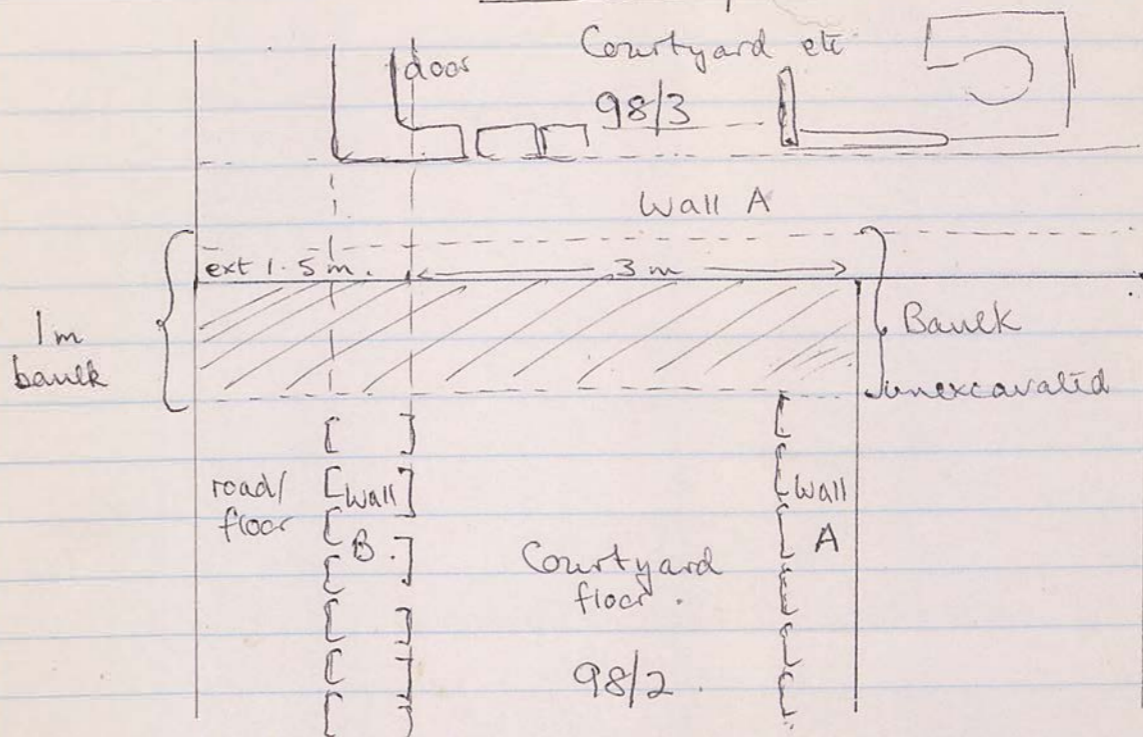 Courtyard etc
door
98/3
Wall A
ext 1.5 m.
3 m
1m
baulk
Baulk
unexcavated
road/
floor
Wall
B.
Wall
A
Courtyard
floor.
98/2.